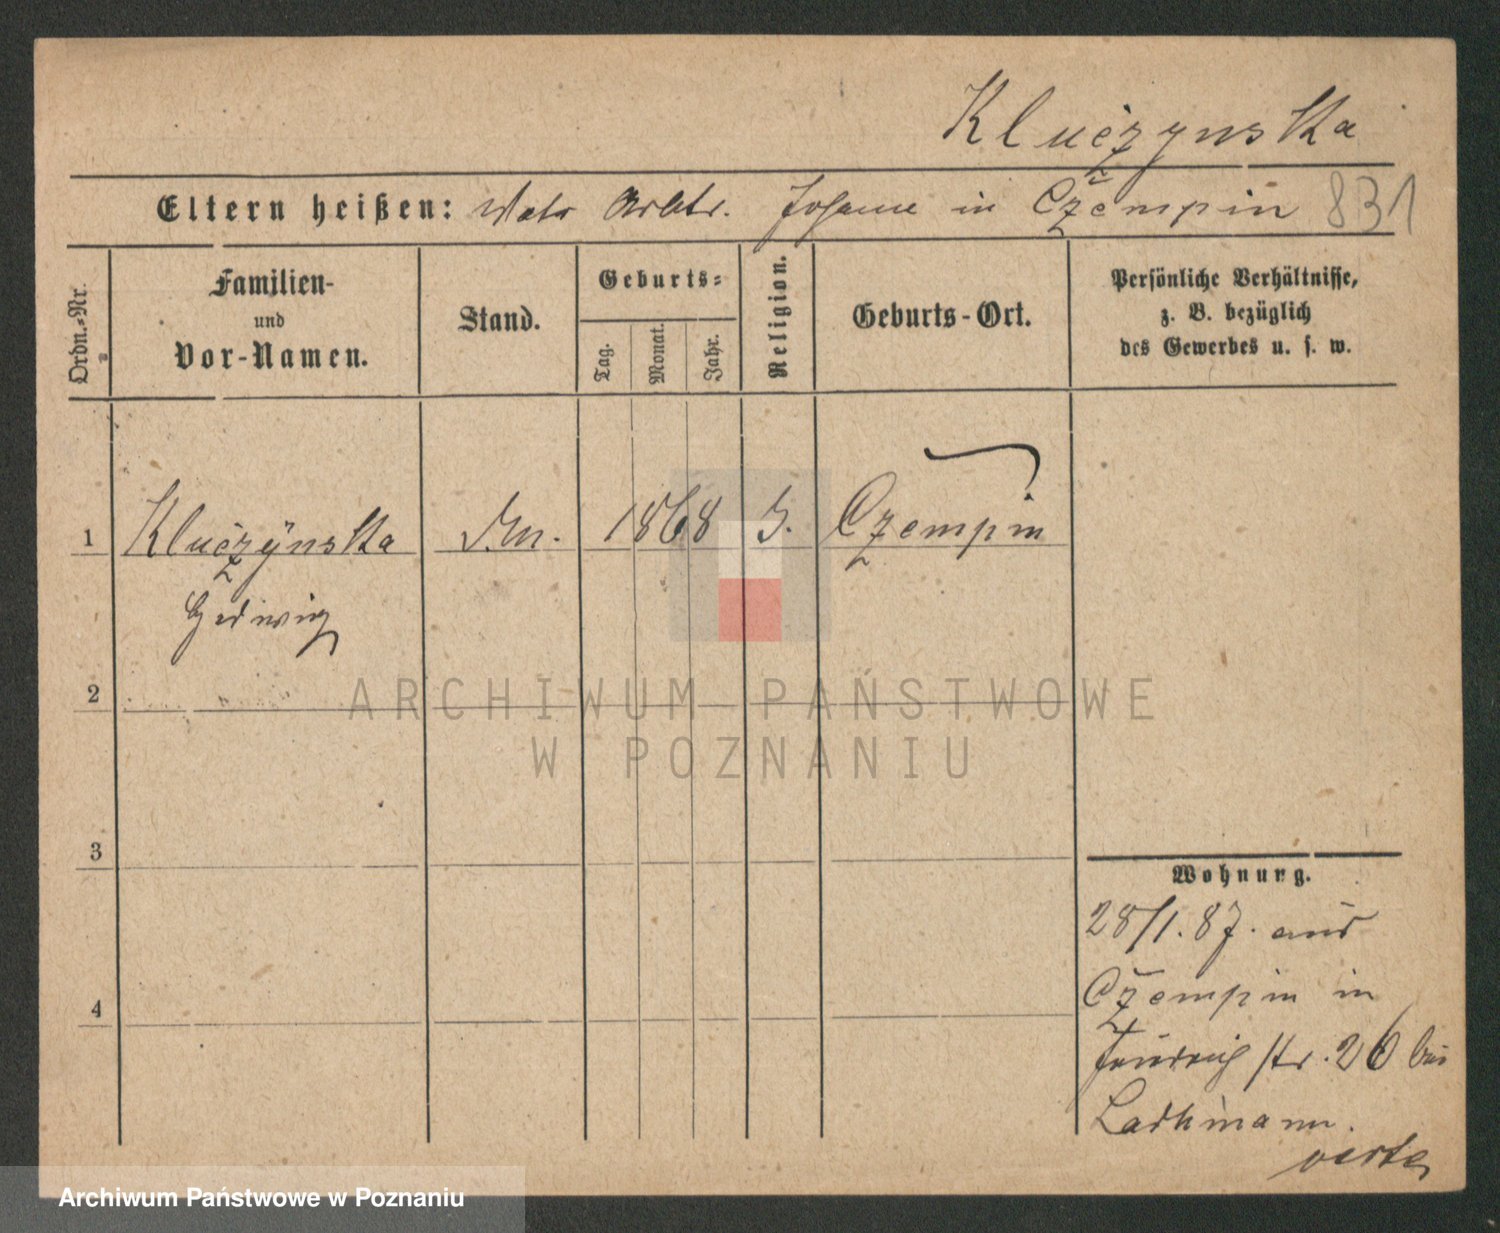 Kluczynska
Eltern heißen: Vater Arbtr. Johann in Czempin 831
Ordn.-Nr.
Familien-
und
Vor-Namen.
Stand.
Geburts-
Tag.
Monat.
Jahr.
Religion.
Geburts-Ort.
Persönliche Verhältnisse,
z. B. bezüglich
des Gewerbes u. s. w.
1 Kluczynska 1868 Czempin
Hedwig
2
ARCHIWUM PAŃSTWOWE
W POZNANIU
3
Wohnung.
28/1. 87. aus
4
Czempin in
Friedrich str. 26 bei
Lachmann.
Archiwum Państwowe w Poznaniu